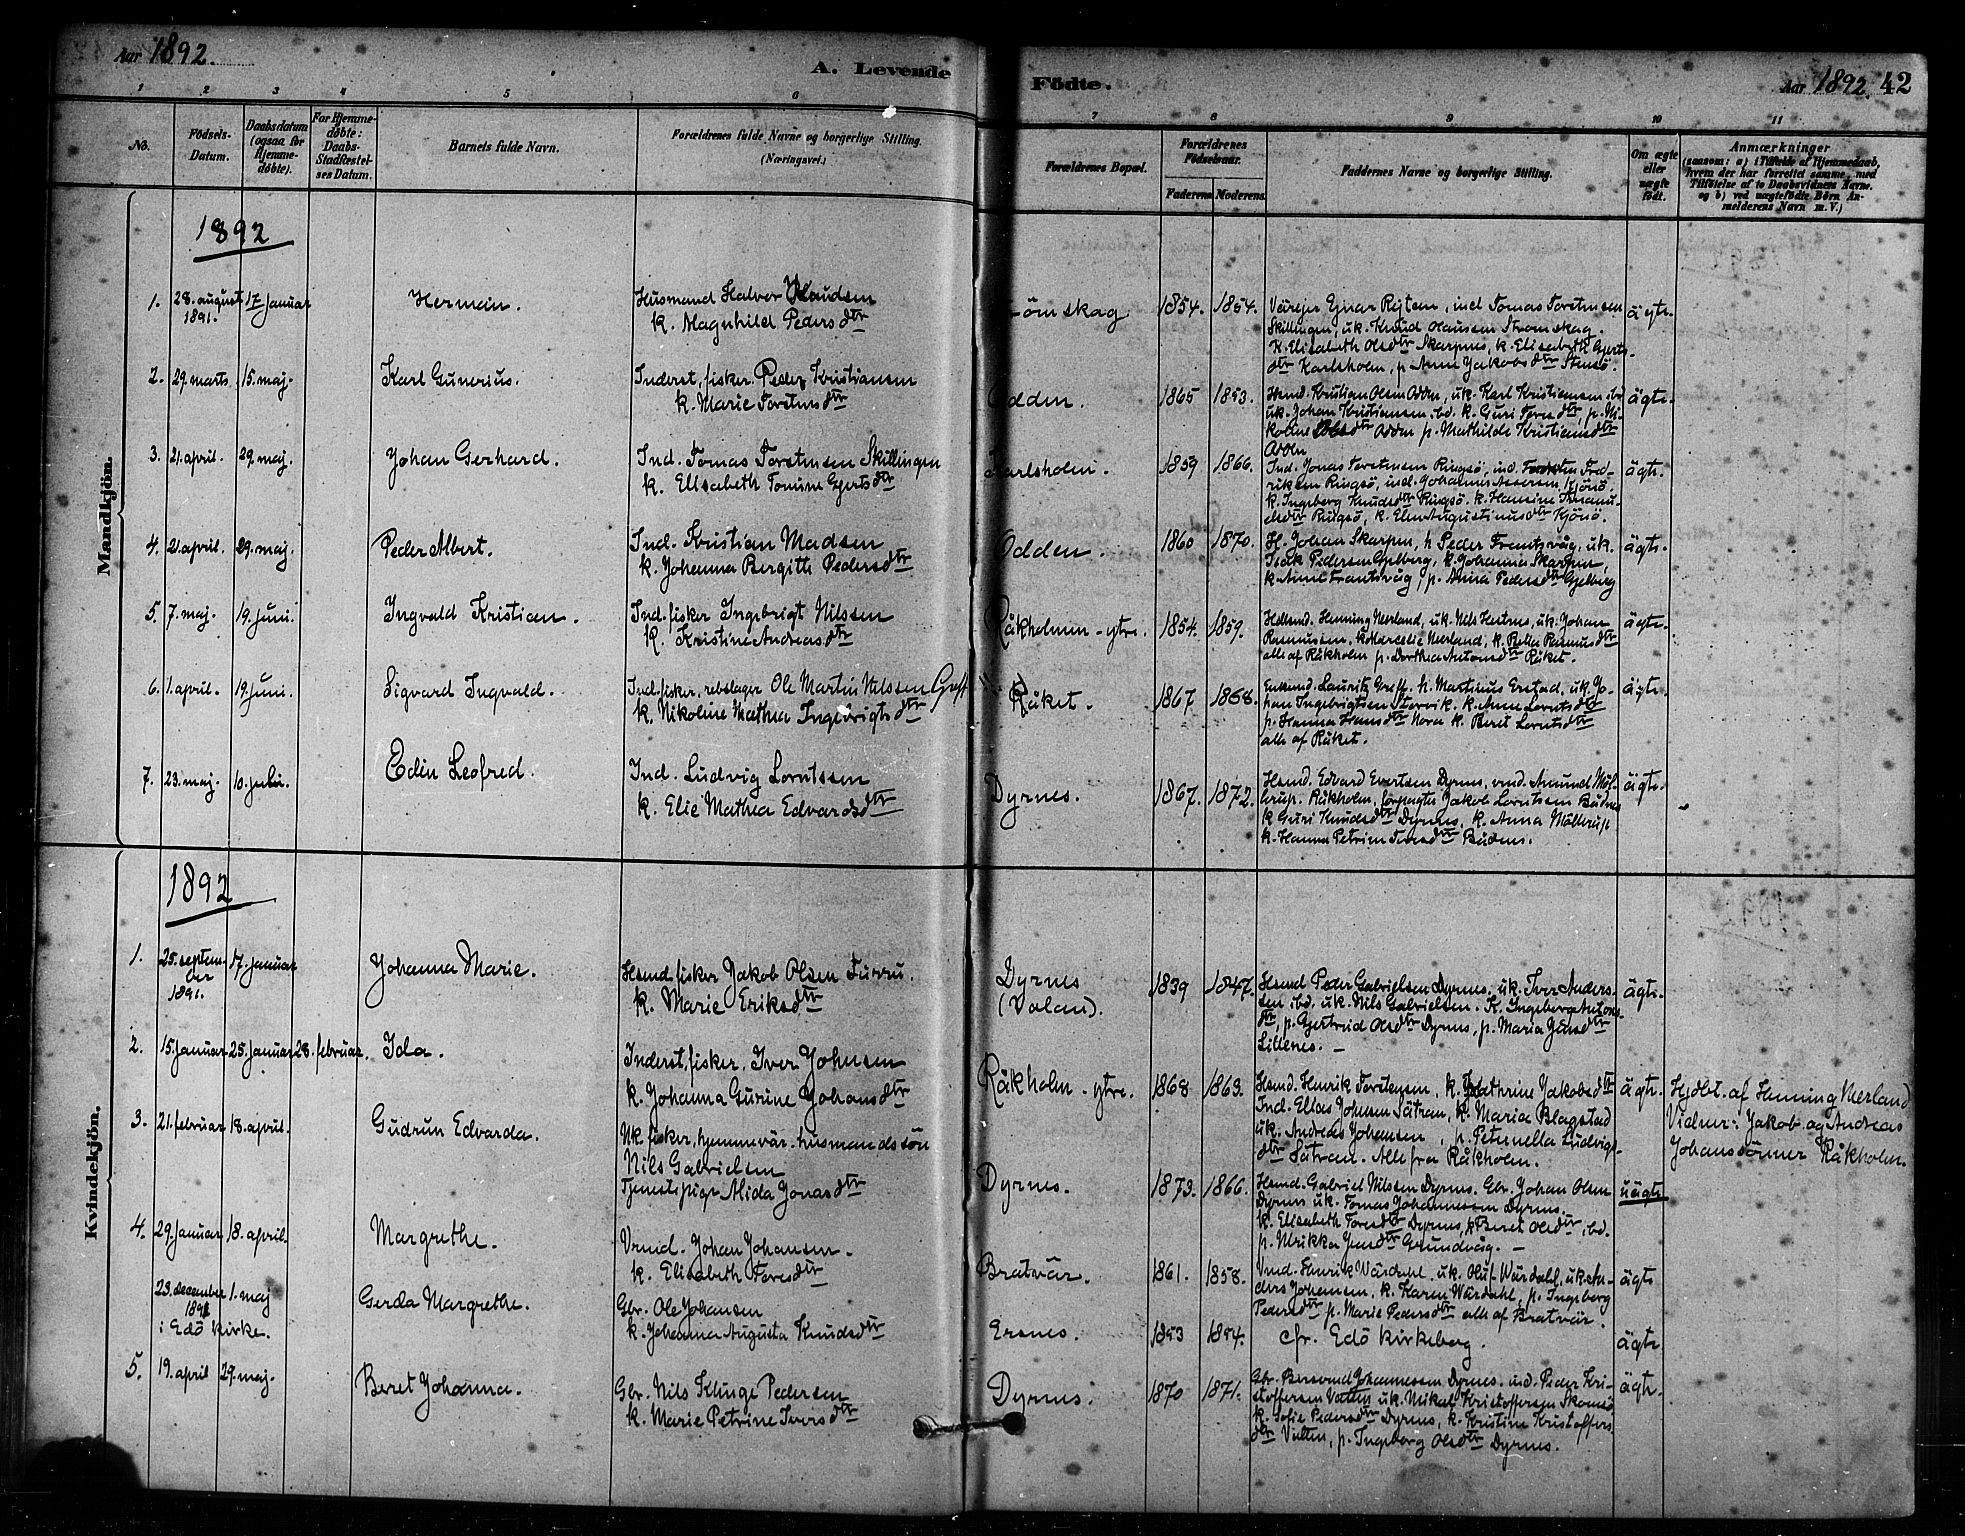 Aar 1892.
A. Levende Födte.
Aar 1892. 42
1 2 3 4 5 6 7 8 9 10 11
No.
Födsels-Datum.
Daabsdatum (ogsaa for Hjemme-döbte).
For Hjemme-döbte: Daabs-Stadfæstel-ses Datum.
Barnets fulde Navn.
Forældrenes fulde Navne og borgerlige Stilling. (Næringsvei.)
Forældrenes Bopæl.
Forældrenes Födselsaar.
Faderens Moderens
Faddernes Navne og borgerlige Stilling.
Om ægte eller uægte födt.
Anmærkninger
(saasom: a) i Tilfælde af Hjemmedaab,
hvem der har forrettet samme, med
Tilföielse af to Daabsvidners Navne.
og b) ved uægtefödte Börn An-
melderens Navn m. V.)
Mandkjön.
1892
1. 28. august 1891. 17 januar Herman.
Husmand Halvor
k. Magnhild Pedersdtr
ömskag 1854. 1854.
Skillingen, uk. Knud Olaussen Strömskag.
K. Elisabeth Olsdtr Skarpnes, k. Elisabeth Gjerts-
dtr Karlsholm, p Anne Jakobsdtr Stensö.
ägte.
2. 29. marts 15. maj. Karl Gunerius.
Inderst, fisker. Peder Kristiansen
k. Marie Torstensdtr
Odden. 1865 1853.
Hsmd. Kristian Olsen Odden, uk. Karl Kristiansen ibd
uk. Johan Kristiansen ibd. k. Guri Toresdtr, p. Ni-
koline Olsdtr Odden p. Mathilde Kristiansdtr
Odden
ägte.
3. 21. april. 29. maj. Johan Gerhard.
Ind. Tomas Torstensen Skillingen
k. Elisabeth Tomine Gjertsdtr
Karlsholm. 1859 1866.
Ind. Jonas Torstensen Ringsö, ind. Torsten Fred-
riksen Ringsö, ind. Johannes Assersen Kjönsö,
k. Ingeborg Knudsdtr Ringsö. k. Hansine Emanu-
elsdtr Ringsö, k. Elen Augustinusdtr Kjönsö.
ägte.
4. 21. april. 29. maj. Peder Albert.
Ind. Kristian Madsen
k. Johanna Birgitte Pedersdtr
Odden. 1860 1870.
H. Johan Skarpnes, h Peder Frantsvåg, uk.
Isak Pedersen Gjelberg, k. Johanna Skarpnes,
k. Anne Frantsvåg, p. Anna Pedersdtr Gjelberg
ägte.
5. 7. maj. 19. juni. Ingvald Kristian.
Ind. fisker Ingebrigt Nilssen
k. Kristine Andreasdtr
Råkholmen - ytre. 1854. 1859.
Henning Nerland, uk. Nils Hestnes, uk. Johan
Rasmussen. k. Marselie Nerland, k. Rasmusdtr
alle af Råkholm p. Dorthea Antonsdtr Råket.
ägte.
6. 1. april. 19. juni. Sigvard Ingvald.
Ind. fisker, rebslager Ole Martin Nilssen Greff
k. Nikoline Mathea Ingebrigtsdtr
Råket. 1867 1868.
Lauritz Greff. h. Martinus Erstad, uk. Jo-
han Ingebrigtsen Storvik. k. Anne Lorntsdtr
p. Hanna Hansdtr k. Beret Lorntsdtr
alle af Råket.
ägte.
7. 23. maj. 10. juli. Edin Leofred.
Ind. Ludvig Lorntssen
k. Elie Mathea Edvardsdtr
Dyrnes. 1867. 1872.
Hsmd. Edvard Evertsen Dyrnes, Amund Möl-
lerup. Råkholm, forpagter Jakob Lorntsen Bådnes
k Guri Knudsdtr Dyrnes, k. Anna Möllerup
k. Hanna Petrine Iversdtr Bådnes.
ägte.
Kvindekjön.
1892
1. 25. septem-ber 1891. 17. januar Johanna Marie.
Hsmd. fisker Jakob Olsen Turru.
k. Marie Eriksdtr
Dyrnes (Valan). 1839 1847.
Hsmd Peder Gabrielsen Dyrnes, uk. Iver Anders-
sen ibd. uk. Nils Gabrielsen. K. Ingeborg Antons-
dtr, p. Gjertrud Olsdtr Dyrnes, p. Maria Jensdtr
Lillenes. -
ägte.
2. 15. januar 25. januar 28. februar. Ida.
Inderst, fisker. Iver Johnsen
k. Johanna Gurine Johansdtr
Råkholm - ytre. 1868 1863.
Hsmd. Henrik Torstensen, k. Kathrine Jakobsdtr
Ind. Elias Johnsen Sätran, k. Maria Blagstad
uk. Andreas Johansen, p. Petrnella Ludvigs-
dtr Sätran. Alle fra Råkholm.
ägte.
Hjdbt. af Henning Nerland
Vidner: Jakob og Andreas
Johanssönner Råkholm.
3. 21. februar 18. april. Gudrun Edvarda.
Uk. fisker, hjemmevär. husmandssön
Nils Gabrielsen
Tjenestpige Alida Jonasdtr
Dyrnes. 1873. 1866.
Hsmd. Gabriel Nilssen Dyrnes. Gbr. Johan Olsen
Dyrnes uk. Tomas Johannessen Dyrnes.
k. Elisabeth Toresdtr Dyrnes, p Beret Olsdtr, ibd.
p. Ulrikka Jensdtr Grundvåg. -
uägte
4. 29. januar 18. april. Margrethe.
Vrmd. Johan Johansen.
k. Elisabeth Toresdtr
Bratvär. 1861. 1858.
Vmd. Henrik Wårdahl, uk. Oluf Wårdahl, uk. An-
ders Johansen, k. Karen Wårdahl, p. Ingeborg
Pedersdtr p. Marie Pedersdtr alle af Bratvär.
ägte
23. december 1891 1. maj i Edö kirke. Gerda Margrethe.
Gbr. Ole Johansen
k. Johanna Augusta Knudsdtr
Ersnes. 1853 1854.
cfr. Edö kirkebog.
ägte
5. 19. april 29. maj. Beret Johanna.
Gbr. Nils Klinge Pedersen
k. Marie Petrine Iversdtr
Dyrnes. 1870 1871.
Gbr. Johannessen Dyrnes. ind. Peder Kri-
stoffersen Vullen uk. Mikal Kristoffersen
k. Sofie Pedersdtr Dyrnes, k. Kristine Kristoffers
dtr Vullen, p. Ingeborg Olsdtr Dyrnes.
ägte.